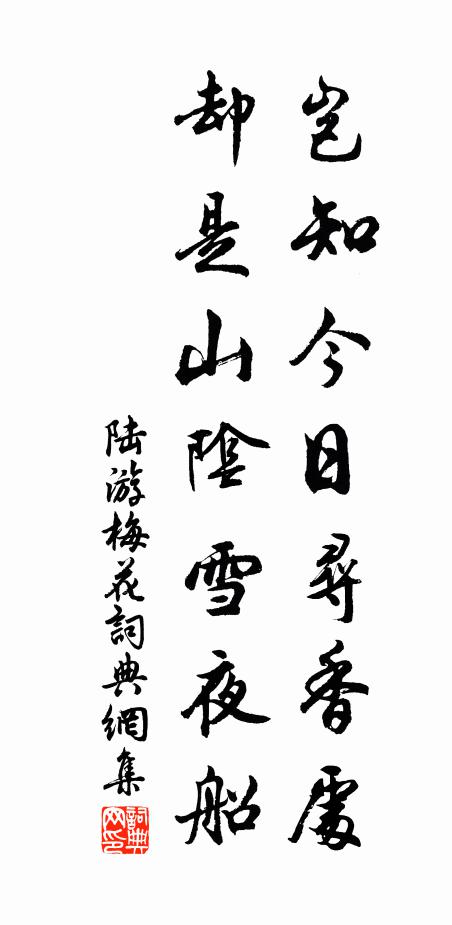 豈知今日尋香處
却是山陰雪夜船
陸游梅花詞典網集
詞典網印